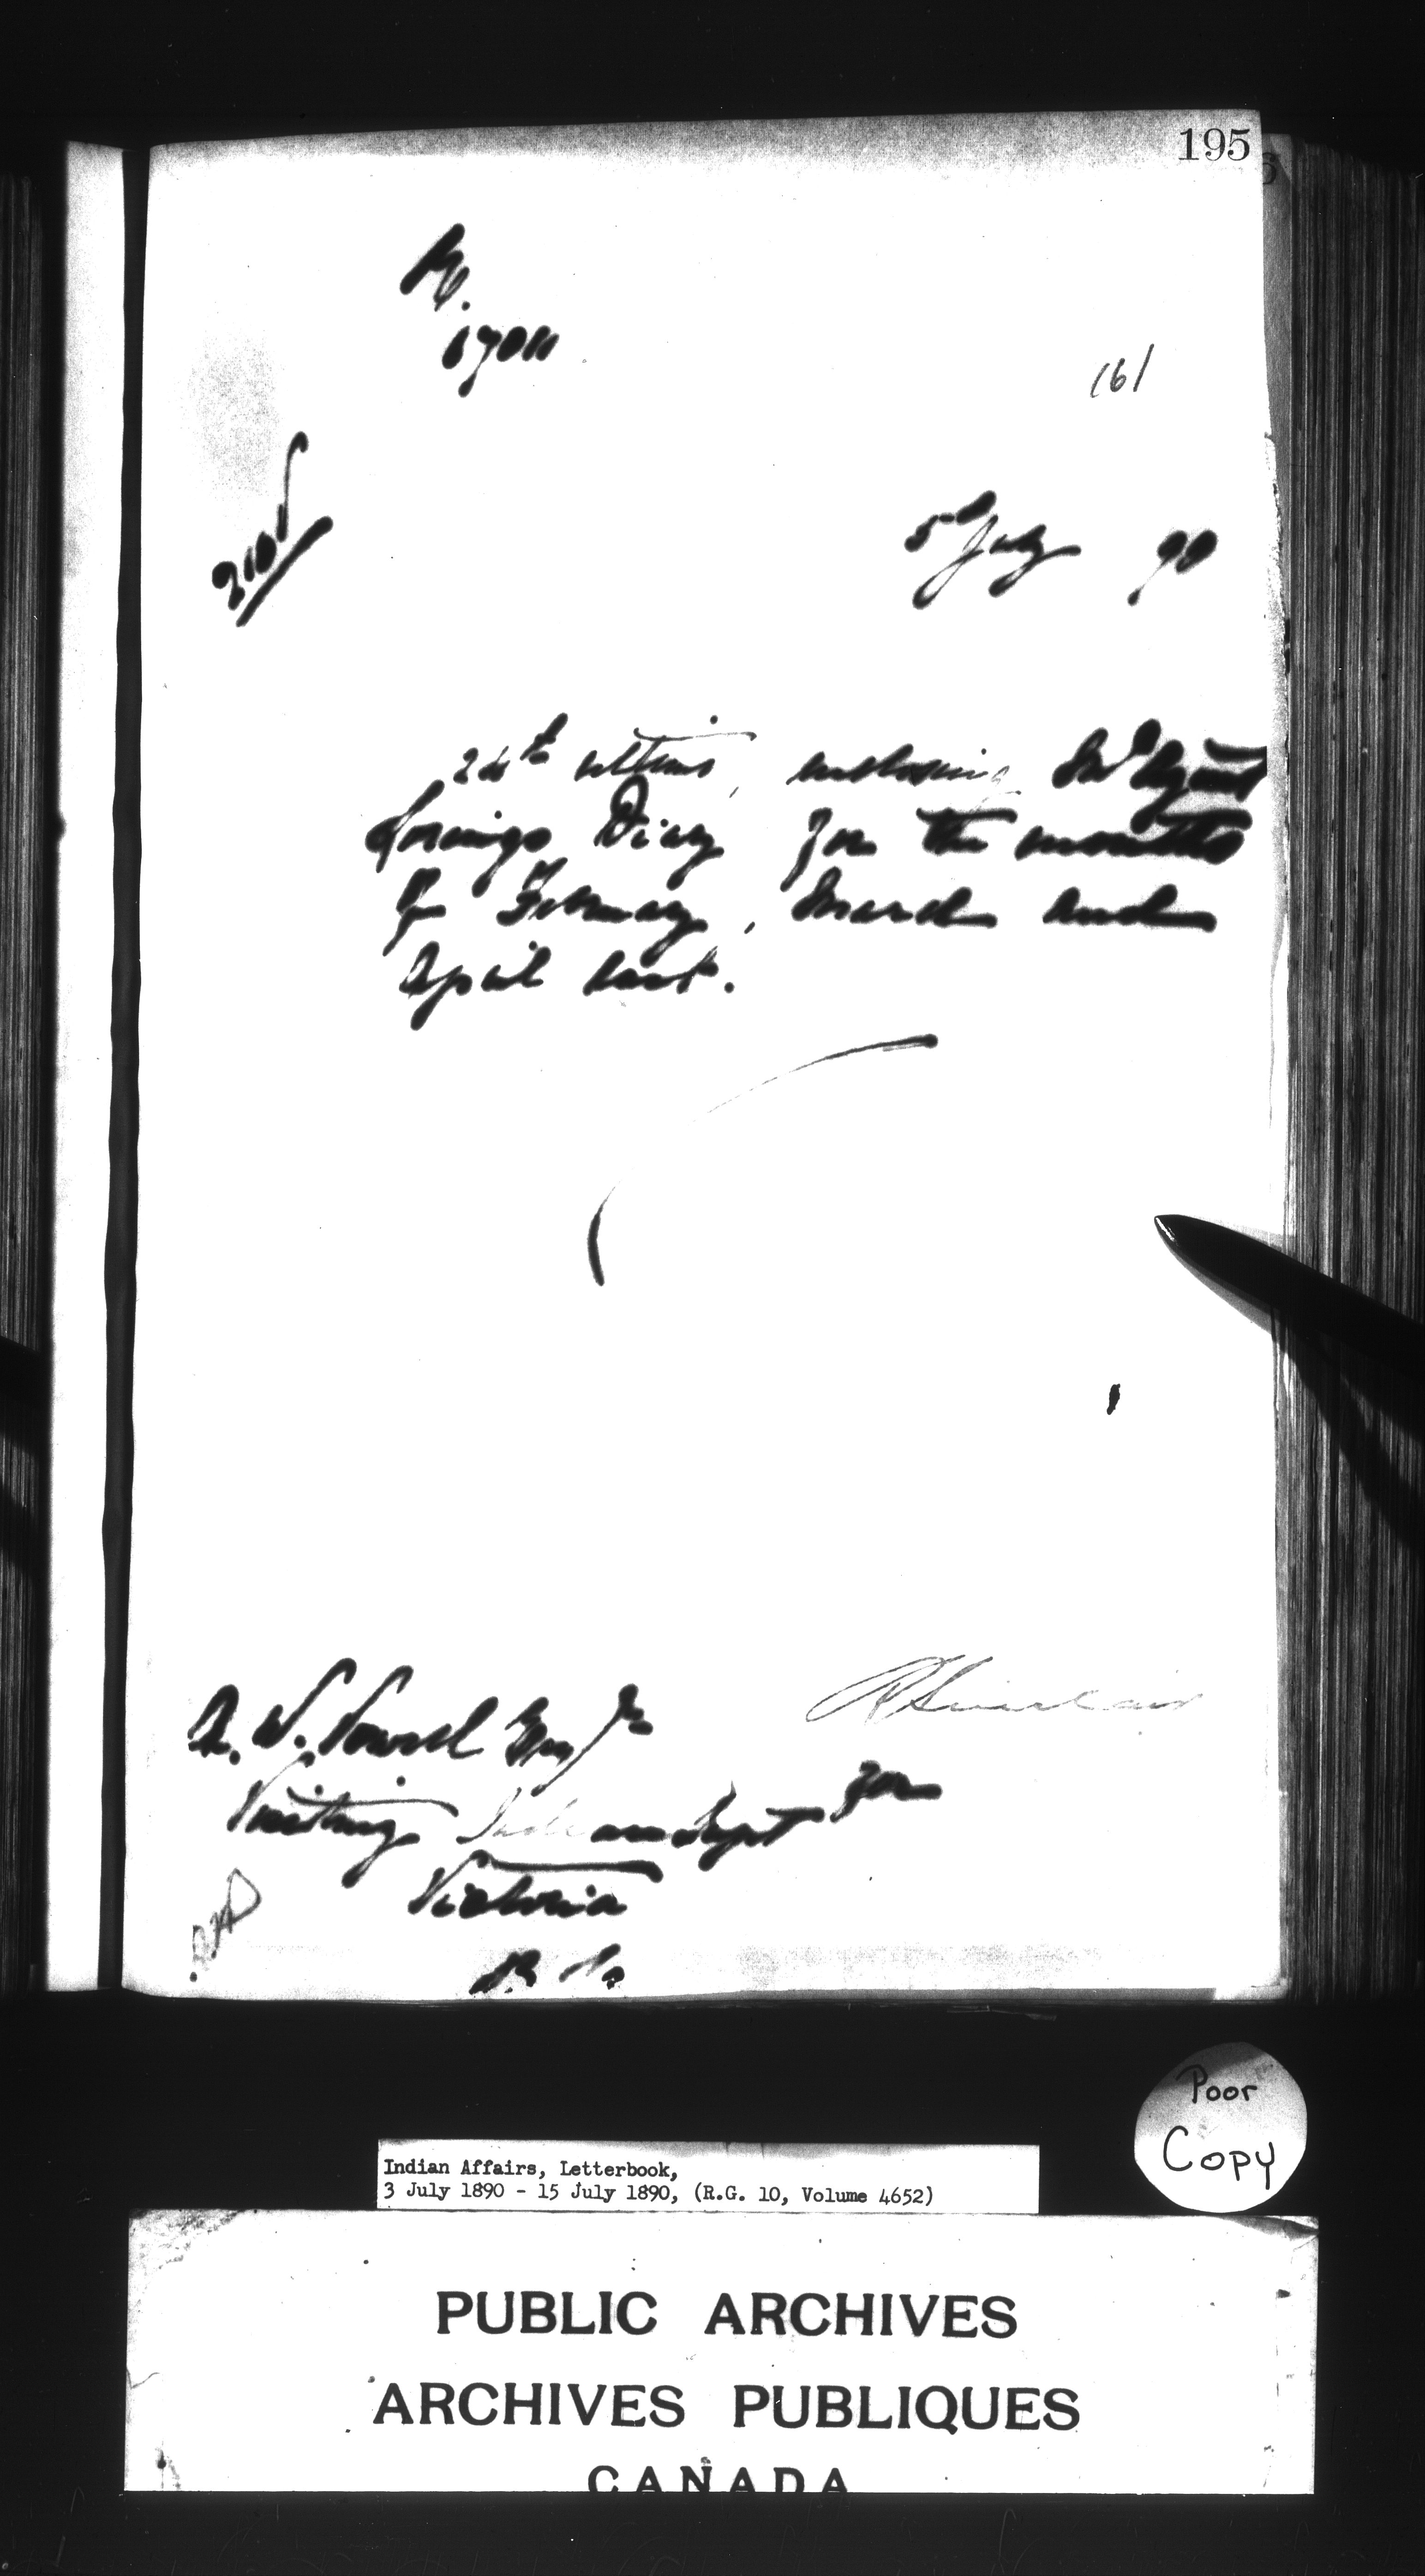 195
67011
161
5 July 90
24th ultimo, enclosing Ind Agent
Diary for the months
of February, March and
April last.
R Sinclair
A. W. Vowell Esqre
Visiting Indian Supt for
Victoria
B.C.
Poor
Copy
Indian Affairs, Letterbook,
3 July 1890 - 15 July 1890, (R.G. 10, Volume 4652)
PUBLIC ARCHIVES
ARCHIVES PUBLIQUES
CANADA